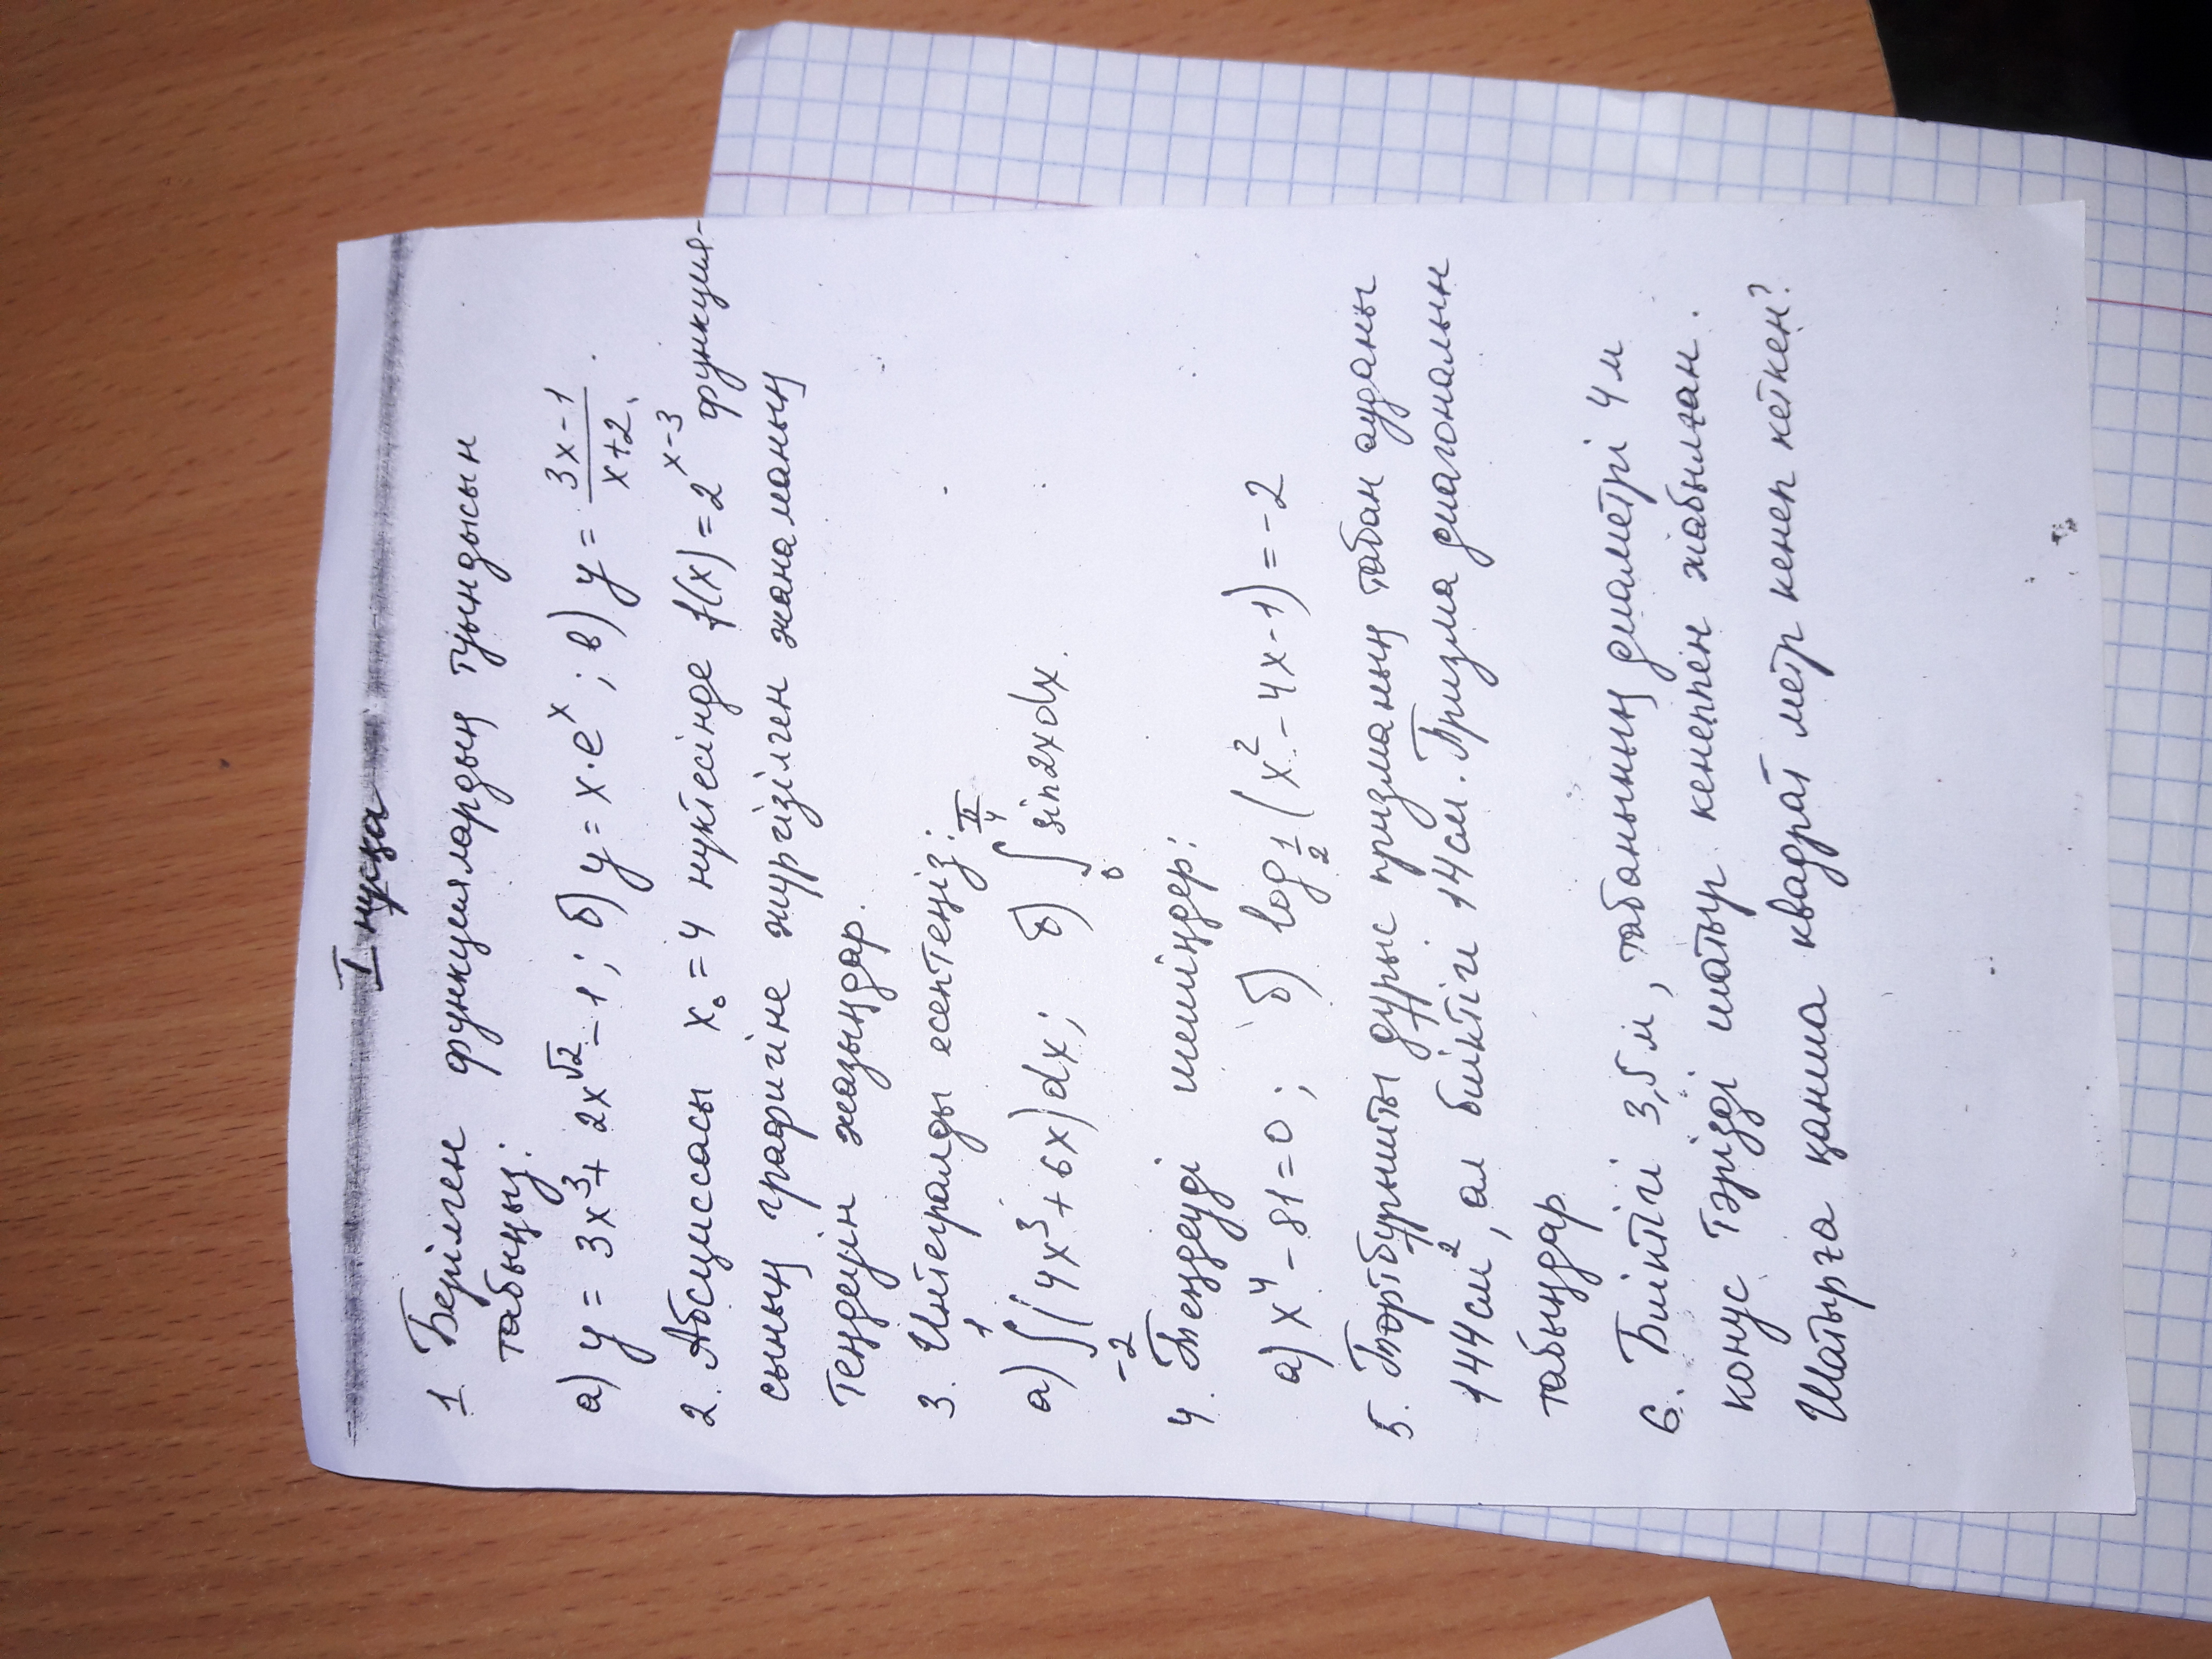 I нұсқа
1 Берілген функциялардың туындысын
табыңыз:
а) y = 3x³ + 2x^√2 - 1; б) y = x·eˣ; в) y = (3x-1)/(x+2).
2. Абсциссасы x₀=4 нүктесінде f(x)=2^(x-3) функция-
сының графигіне жүргізілген жанаманың
теңдеуін жазыңдар.
3. Интегралды есептеңіз:
а) ∫₋₂¹(4x³+6x)dx; б) ∫₀^(π/4) sin2xdx.
4. Теңдеуді шешіңдер:
а) x⁴-81=0; б) log_(1/2)(x²-4x-1)=-2
5. Төртбұрышты дұрыс призманың табан ауданы
144см², ал биіктігі 14см. Призма диагоналын
табыңдар
6. Биіктігі 3,5м, табанының диаметрі 4м
конус тәрізді шатыр кенеппен жабылған.
Шатырға қанша квадрат метр кенеп кеткен?